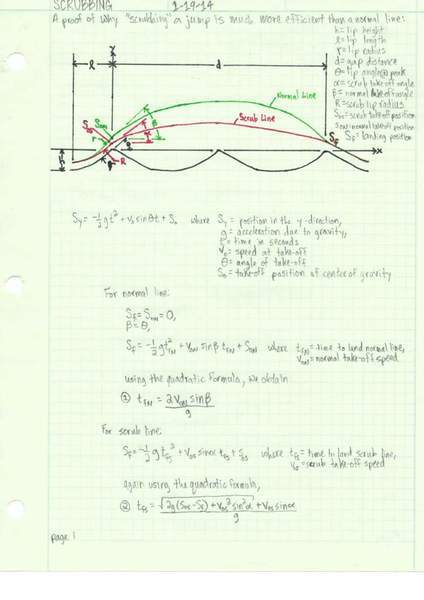 SCRUBBING 1-19-14
A proof of why "scrubbing" a jump is much more efficient than a normal line:
h = lip height
l = lip length
r = lip radius
d = gap distance
θ = lip angle @ peak
α = scrub take-off angle
β = normal take-off angle
R = scrub lip radius
Sos = scrub take-off position
Son = normal take-off position
Sf = landing position
y
l
d
Normal Line
Scrub Line
Son
Sos
r
β
α
Sf
x
h
θ
R
Sy = -½gt² + v₀sinθt + S₀ where Sy = position in the y-direction,
g = acceleration due to gravity,
t = time in seconds
v₀ = speed at take-off
θ = angle of take-off
S₀ = take-off position of center of gravity
For normal line:
Sf = Son = 0,
β = θ,
Sf = -½gt²fN + voN sinβ tfN + SoN where tfN = time to land normal line,
voN = normal take-off speed
using the quadratic formula, we obtain
① tfN = 2voN sinβ / g
For scrub line:
Sf = -½gtfs² + vos sinα tfs + Sos where tfs = time to land scrub line,
vos = scrub take-off speed
again using the quadratic formula,
② tfs = √2g(Sos-Sf) + vos² sin²α + vos sinα / g
page 1